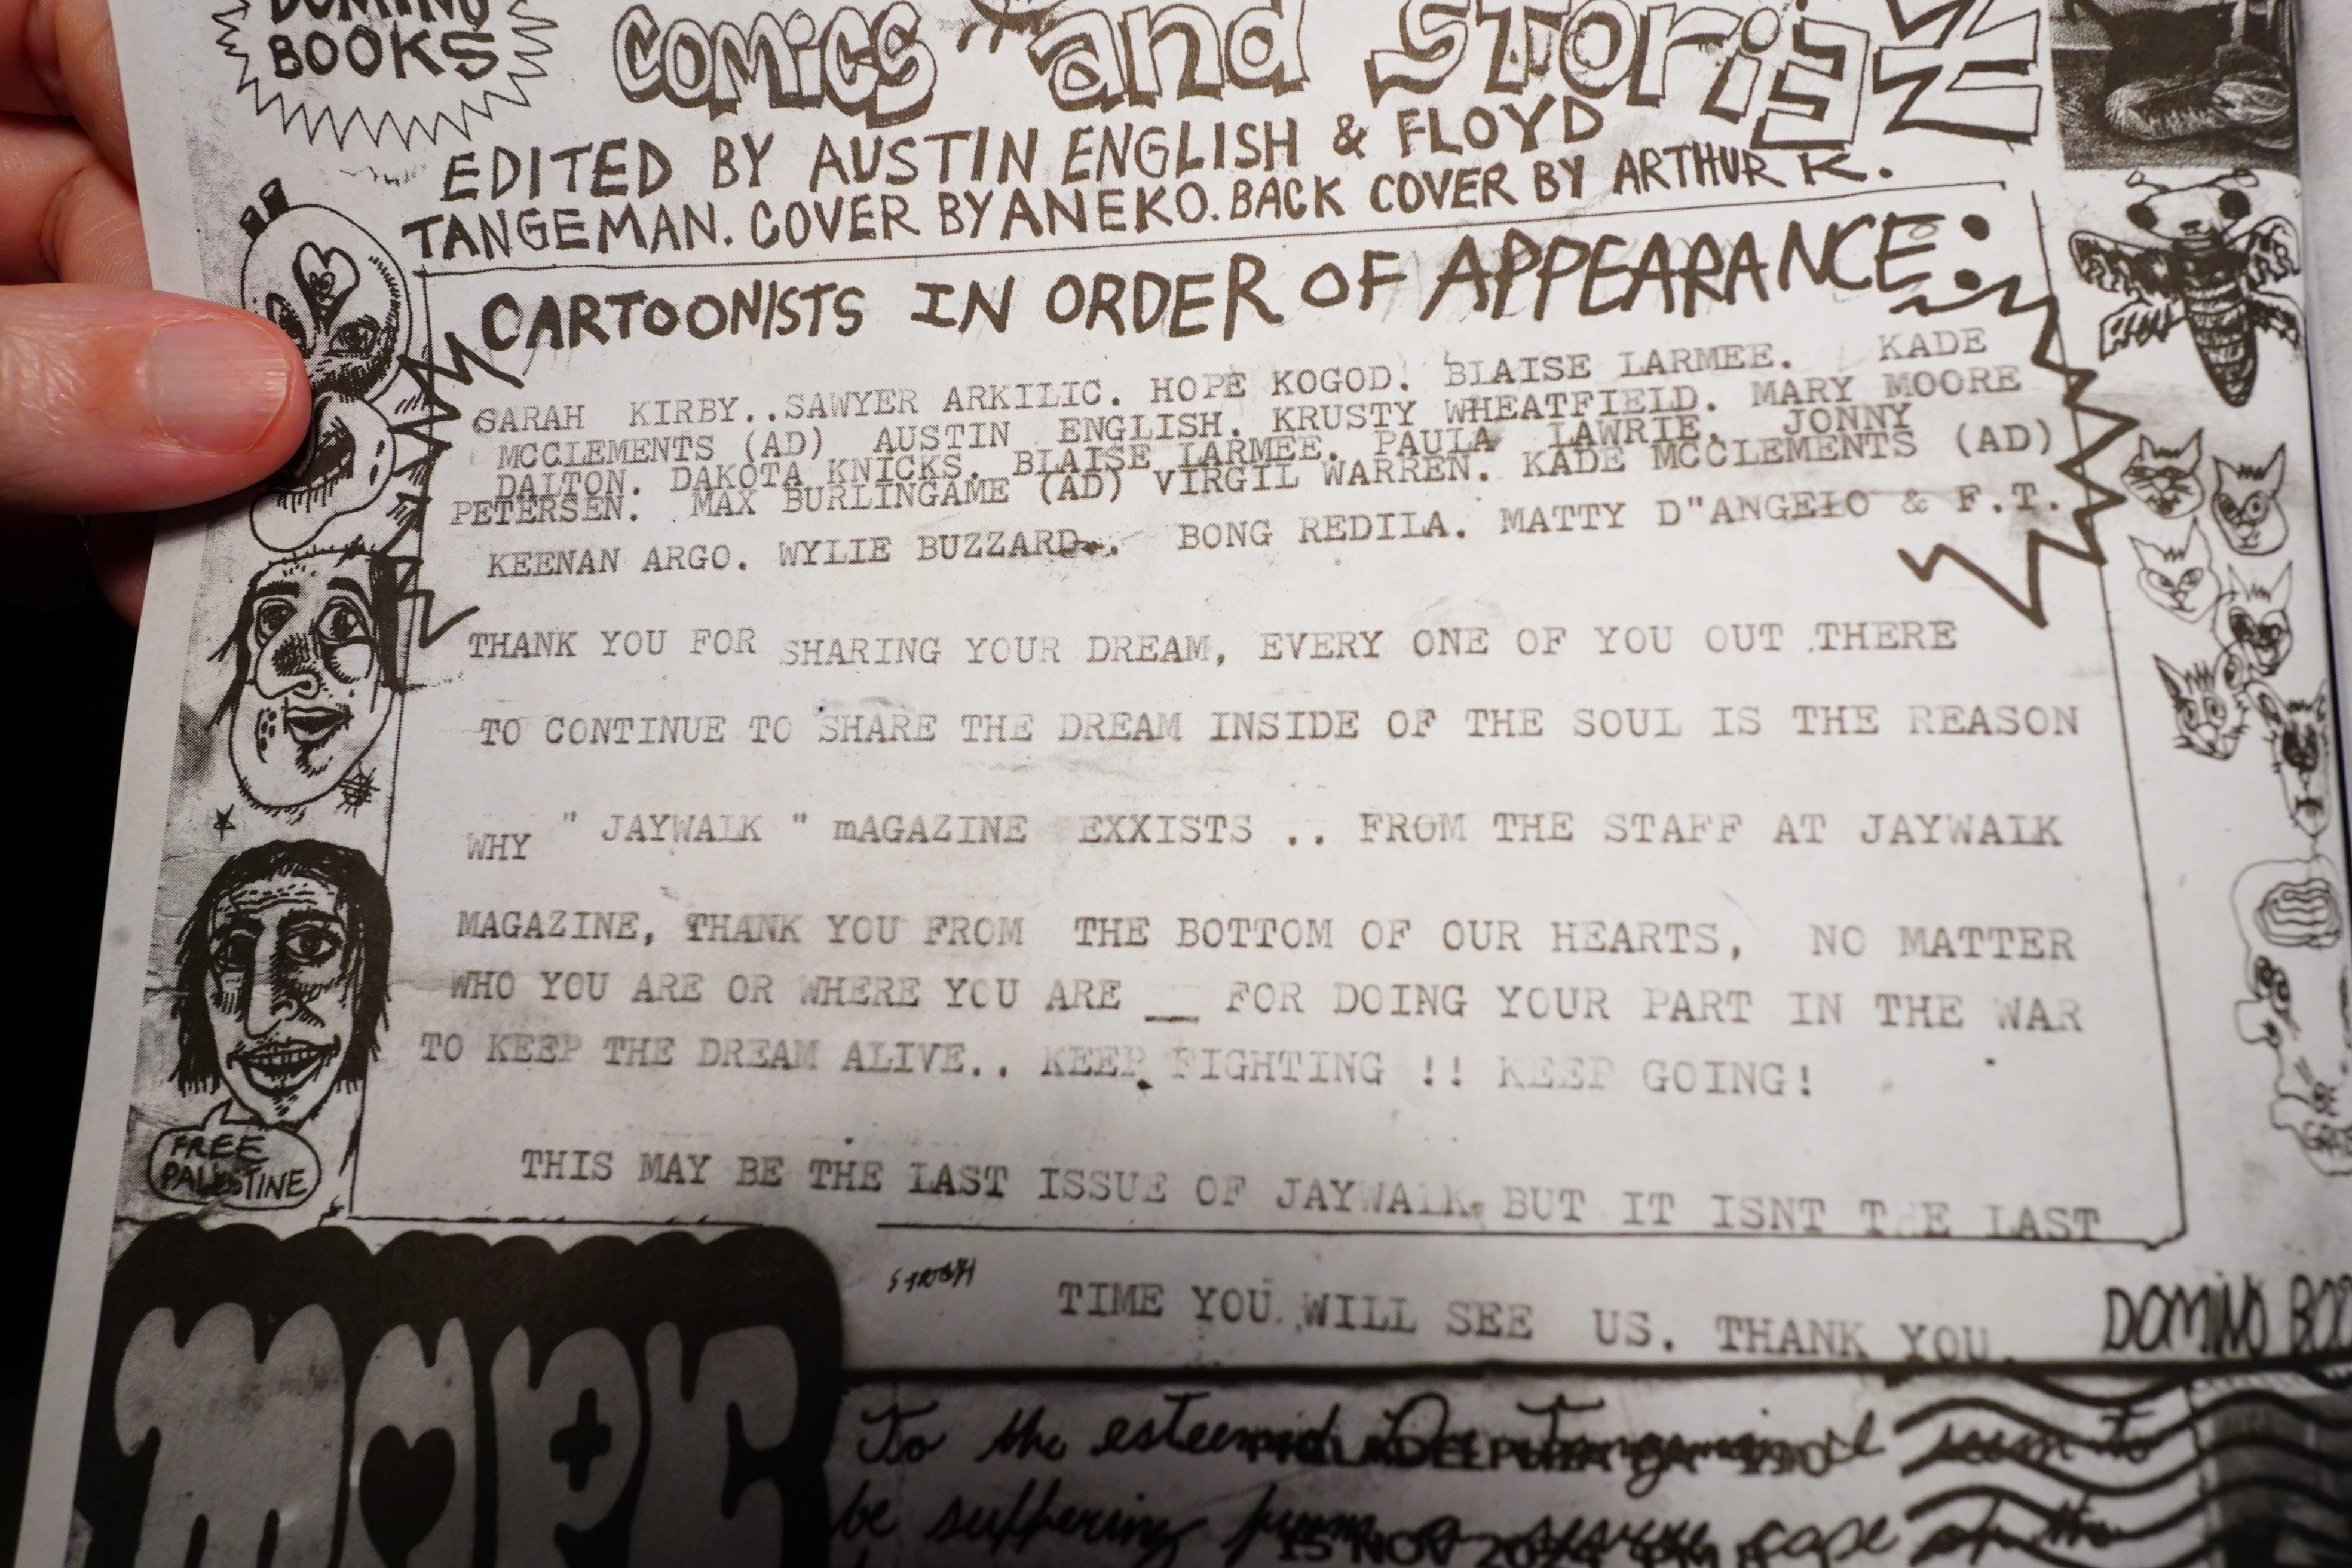 DOMINO
BOOKS
COMiCS and STORiEZ
EDITED BY AUSTIN ENGLISH & FLOYD
TANGEMAN. COVER BY ANEKO. BACK COVER BY ARTHUR K.
CARTOONISTS IN ORDER OF APPEARANCE:
SARAH KIRBY..SAWYER ARKILIC. HOPE KOGOD. BLAISE LARMEE. KADE
MCCLEMENTS (AD) AUSTIN ENGLISH. KRUSTY WHEATFIELD. MARY MOORE
DALTON. DAKOTA KNICKS. BLAISE LARMEE. PAULA LAWRIE. JONNY
PETERSEN. MAX BURLINGAME (AD) VIRGIL WARREN. KADE MCCLEMENTS (AD)
KEENAN ARGO. WYLIE BUZZARD.. BONG REDILA. MATTY D"ANGELO & F.T.
THANK YOU FOR SHARING YOUR DREAM, EVERY ONE OF YOU OUT THERE
TO CONTINUE TO SHARE THE DREAM INSIDE OF THE SOUL IS THE REASON
WHY " JAYWALK " mAGAZINE EXXISTS .. FROM THE STAFF AT JAYWALK
MAGAZINE, THANK YOU FROM THE BOTTOM OF OUR HEARTS, NO MATTER
WHO YOU ARE OR WHERE YOU ARE __ FOR DOING YOUR PART IN THE WAR
TO KEEP THE DREAM ALIVE.. KEEP FIGHTING !! KEEP GOING!
THIS MAY BE THE LAST ISSUE OF JAYWALK, BUT IT ISNT THE LAST
TIME YOU WILL SEE US. THANK YOU.
FREE
PALESTINE
DOMINO BOO
To the esteemed I seem to
be suffering from a severe case of the
PHILADELPHIA PA 190
15 NOV